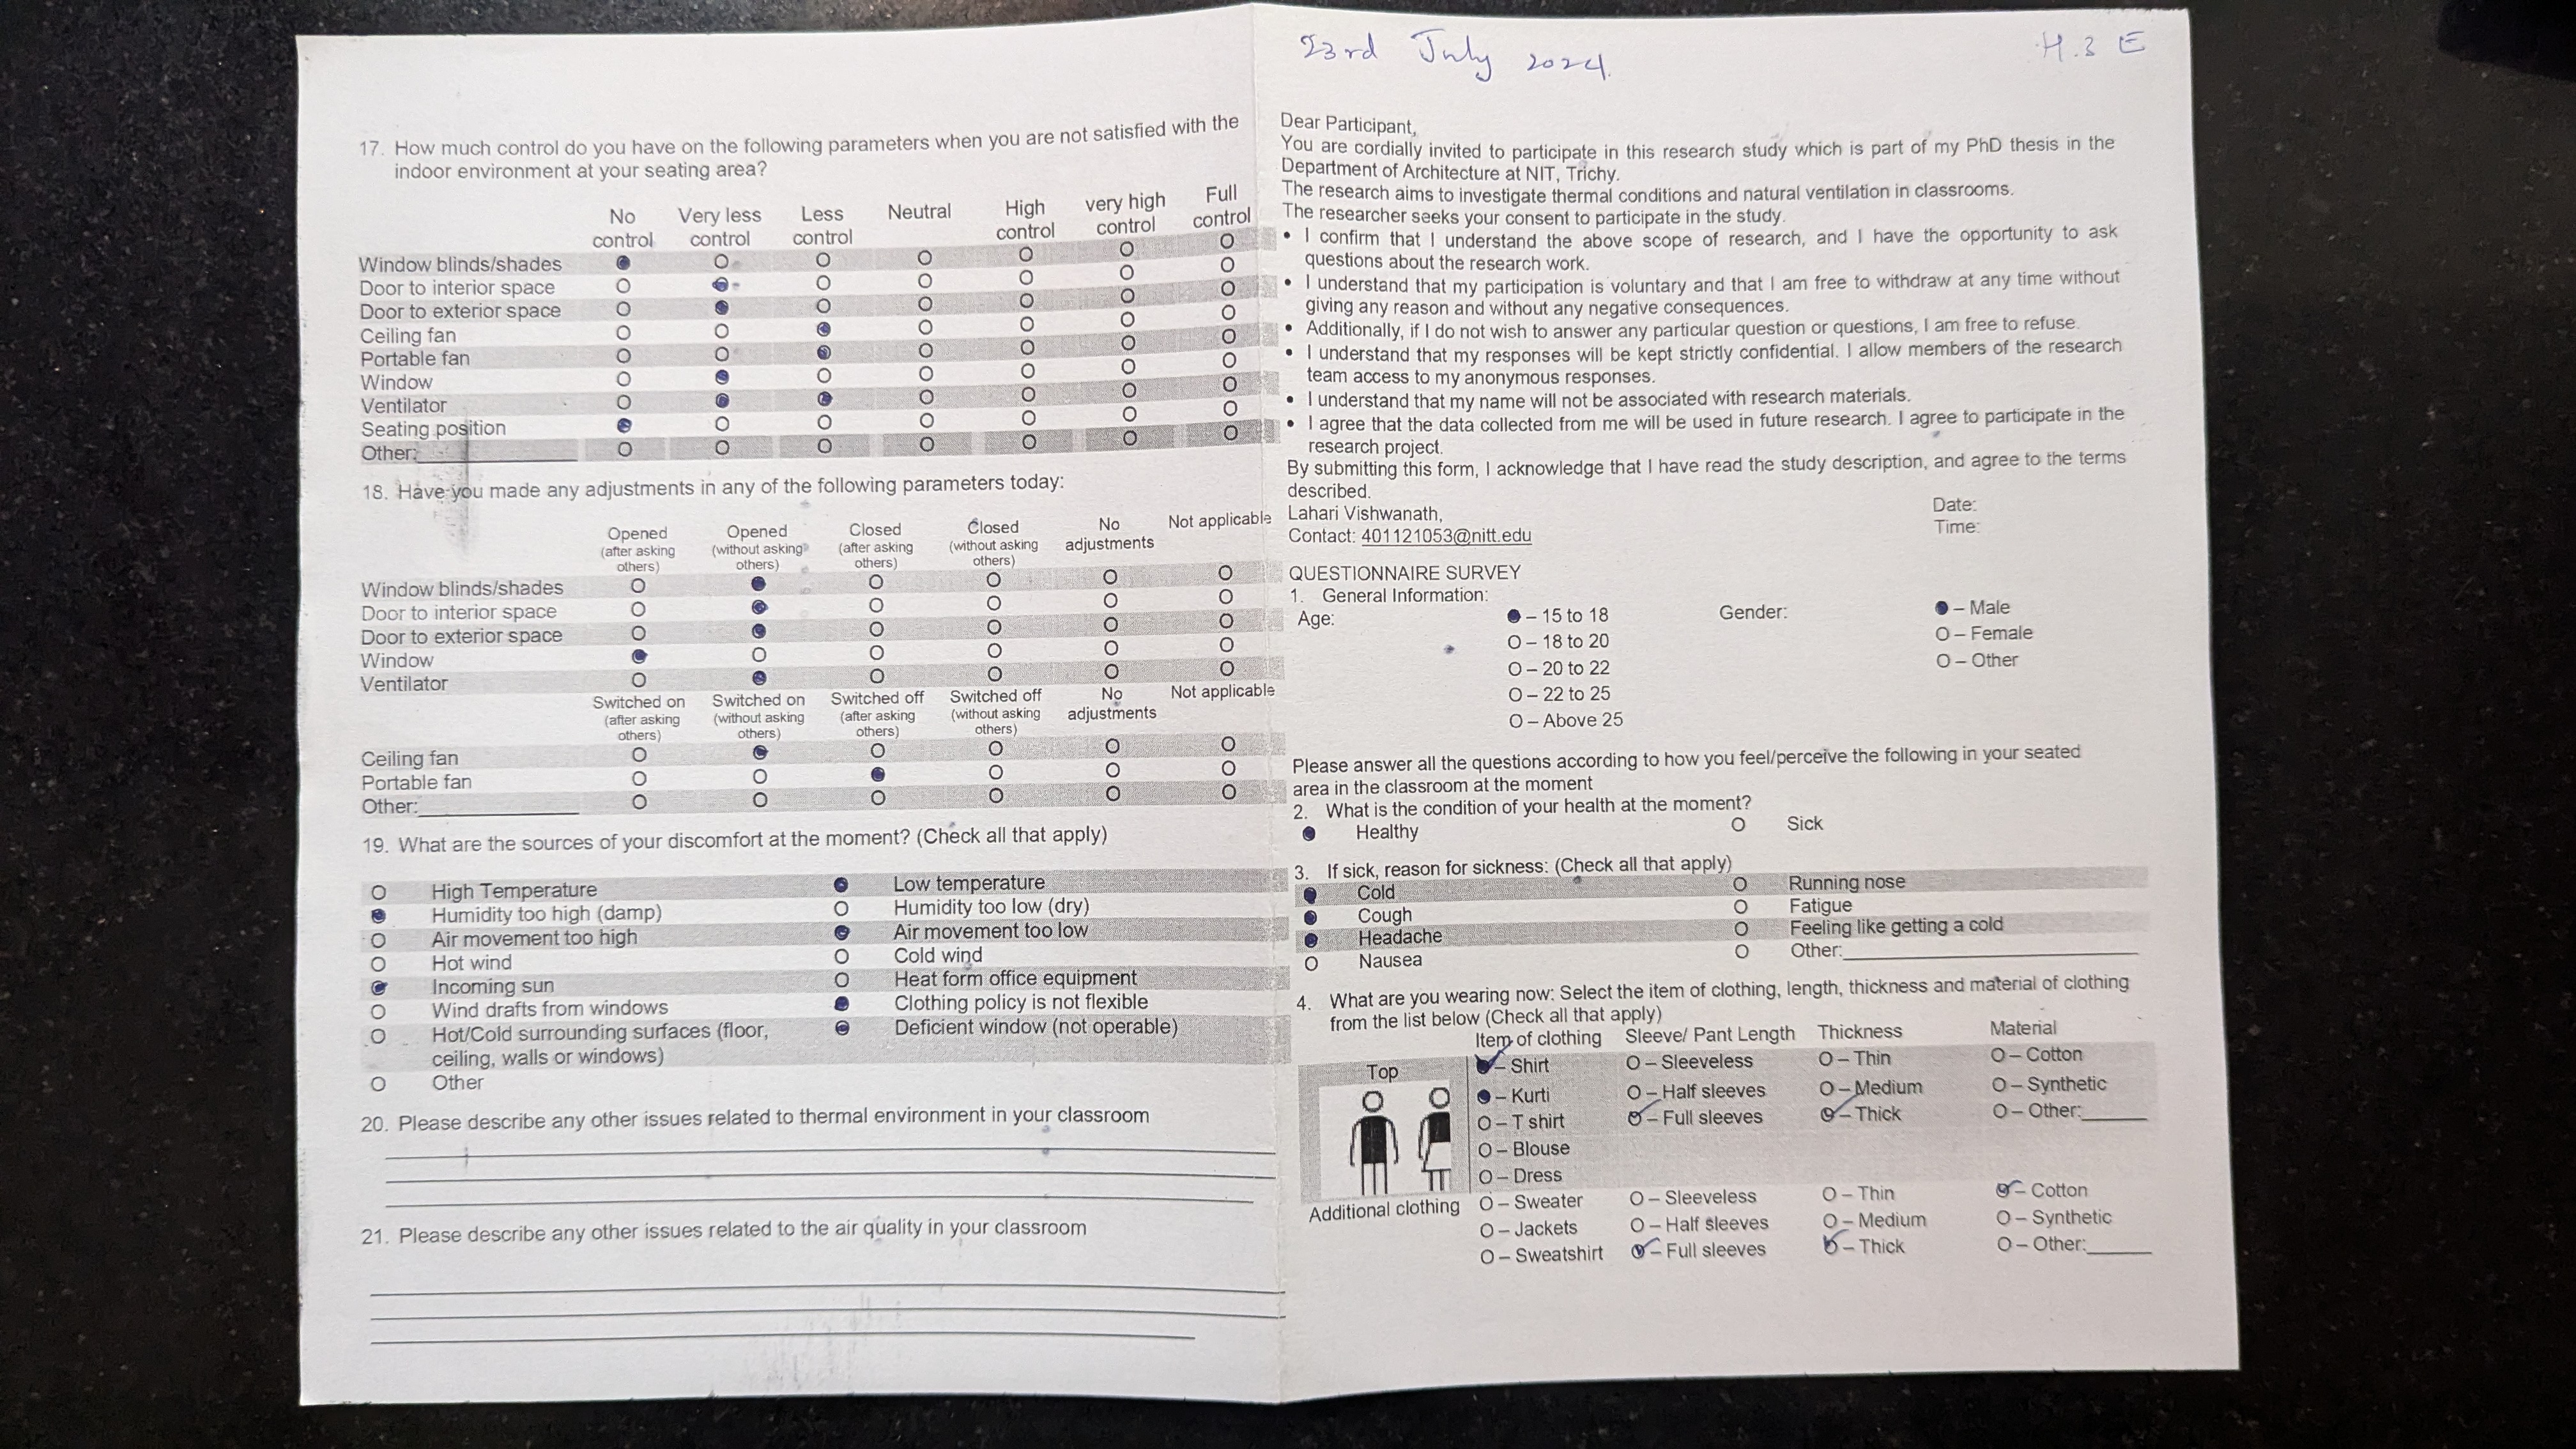 17. How much control do you have on the following parameters when you are not satisfied with the
indoor environment at your seating area?
No control Very less control Less control Neutral High control very high control Full control
Window blinds/shades
Door to interior space
Door to exterior space
Ceiling fan
Portable fan
Window
Ventilator
Seating position
Other:
18. Have you made any adjustments in any of the following parameters today:
Opened (after asking others) Opened (without asking others) Closed (after asking others) Closed (without asking others) No adjustments Not applicable
Window blinds/shades
Door to interior space
Door to exterior space
Window
Ventilator
Switched on (after asking others) Switched on (without asking others) Switched off (after asking others) Switched off (without asking others) No adjustments Not applicable
Ceiling fan
Portable fan
Other:
19. What are the sources of your discomfort at the moment? (Check all that apply)
High Temperature Low temperature
Humidity too high (damp) Humidity too low (dry)
Air movement too high Air movement too low
Hot wind Cold wind
Incoming sun Heat form office equipment
Wind drafts from windows Clothing policy is not flexible
Hot/Cold surrounding surfaces (floor, Deficient window (not operable)
ceiling, walls or windows)
Other
20. Please describe any other issues related to thermal environment in your classroom
21. Please describe any other issues related to the air quality in your classroom
23rd July 2024. H.3 E
Dear Participant,
You are cordially invited to participate in this research study which is part of my PhD thesis in the
Department of Architecture at NIT, Trichy.
The research aims to investigate thermal conditions and natural ventilation in classrooms.
The researcher seeks your consent to participate in the study.
• I confirm that I understand the above scope of research, and I have the opportunity to ask
questions about the research work.
• I understand that my participation is voluntary and that I am free to withdraw at any time without
giving any reason and without any negative consequences.
• Additionally, if I do not wish to answer any particular question or questions, I am free to refuse.
• I understand that my responses will be kept strictly confidential. I allow members of the research
team access to my anonymous responses.
• I understand that my name will not be associated with research materials.
• I agree that the data collected from me will be used in future research. I agree to participate in the
research project.
By submitting this form, I acknowledge that I have read the study description, and agree to the terms
described.
Date:
Lahari Vishwanath,
Time:
Contact: 401121053@nitt.edu
QUESTIONNAIRE SURVEY
1. General Information:
Age: – 15 to 18 Gender: – Male
O – 18 to 20 O – Female
O – 20 to 22 O – Other
O – 22 to 25
O – Above 25
Please answer all the questions according to how you feel/perceive the following in your seated
area in the classroom at the moment
2. What is the condition of your health at the moment?
Healthy Sick
3. If sick, reason for sickness: (Check all that apply)
Cold Running nose
Cough Fatigue
Headache Feeling like getting a cold
Nausea Other:
4. What are you wearing now: Select the item of clothing, length, thickness and material of clothing
from the list below (Check all that apply)
Item of clothing Sleeve/ Pant Length Thickness Material
Top – Shirt O – Sleeveless O – Thin O – Cotton
– Kurti O – Half sleeves O – Medium O – Synthetic
O – T shirt O – Full sleeves O – Thick O – Other:
O – Blouse
O – Dress
Additional clothing O – Sweater O – Sleeveless O – Thin O – Cotton
O – Jackets O – Half sleeves O – Medium O – Synthetic
O – Sweatshirt O – Full sleeves O – Thick O – Other: